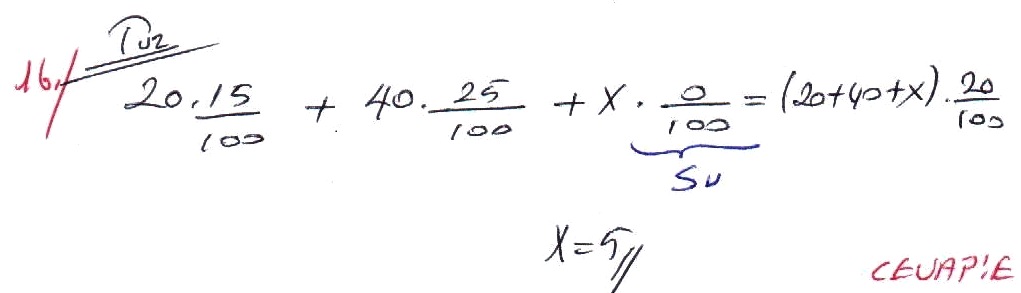 16/ Tuz
20 . 15/100 + 40 . 25/100 + X . 0/100 = (20+40+X) . 20/100
Su
X = 5//
CEVAP: E